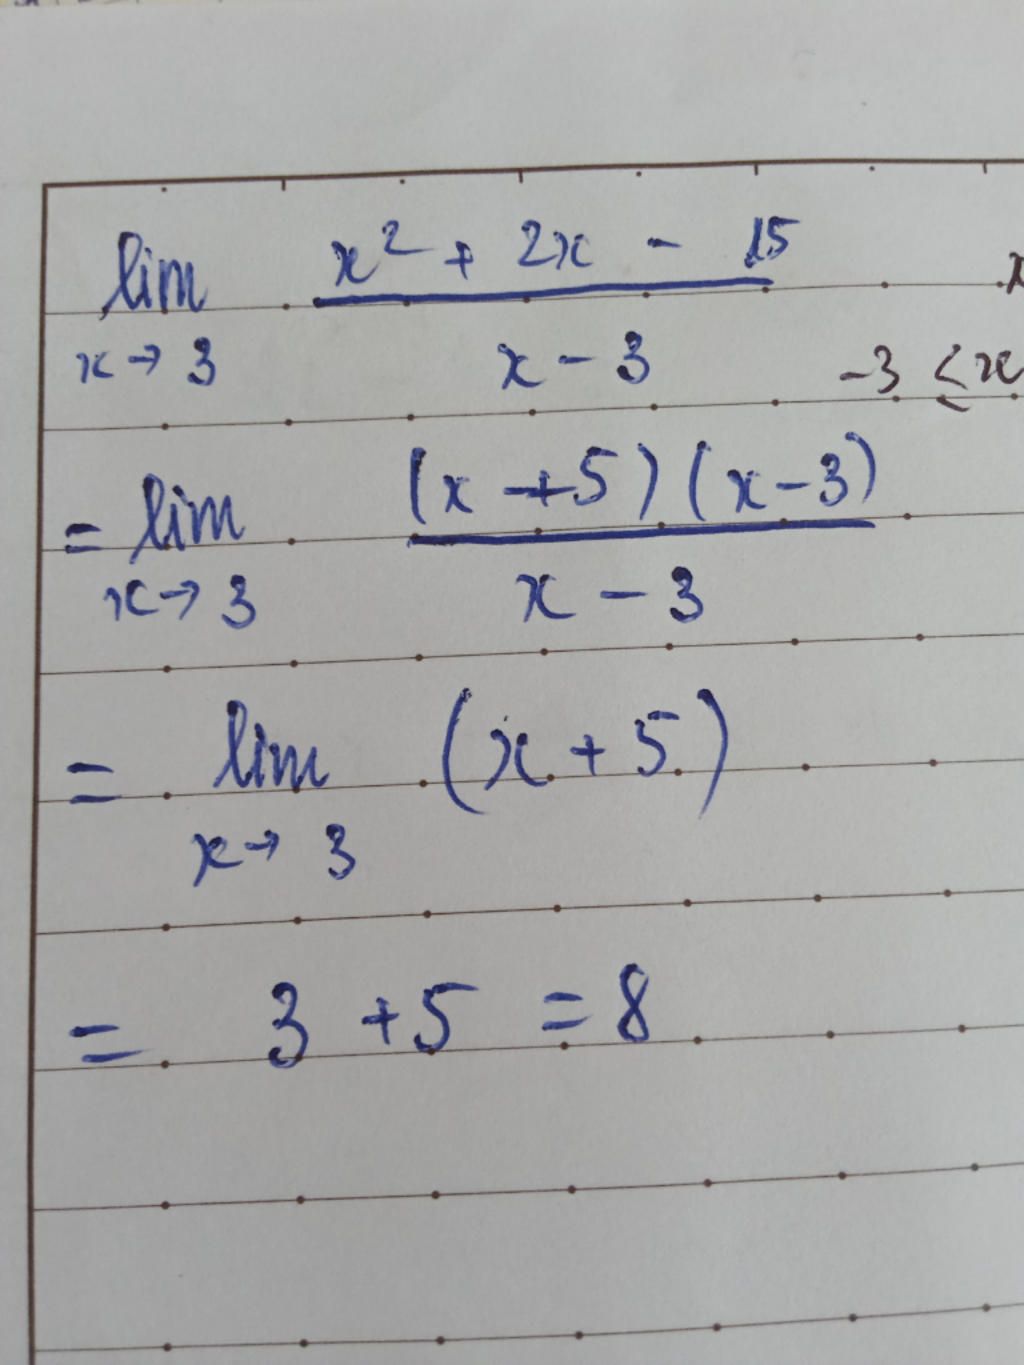 lim x² + 2x - 15
x→3 x - 3
-3 ≤ x
= lim (x + 5) (x - 3)
x→3 x - 3
= lim (x + 5)
x→3
= 3 + 5 = 8